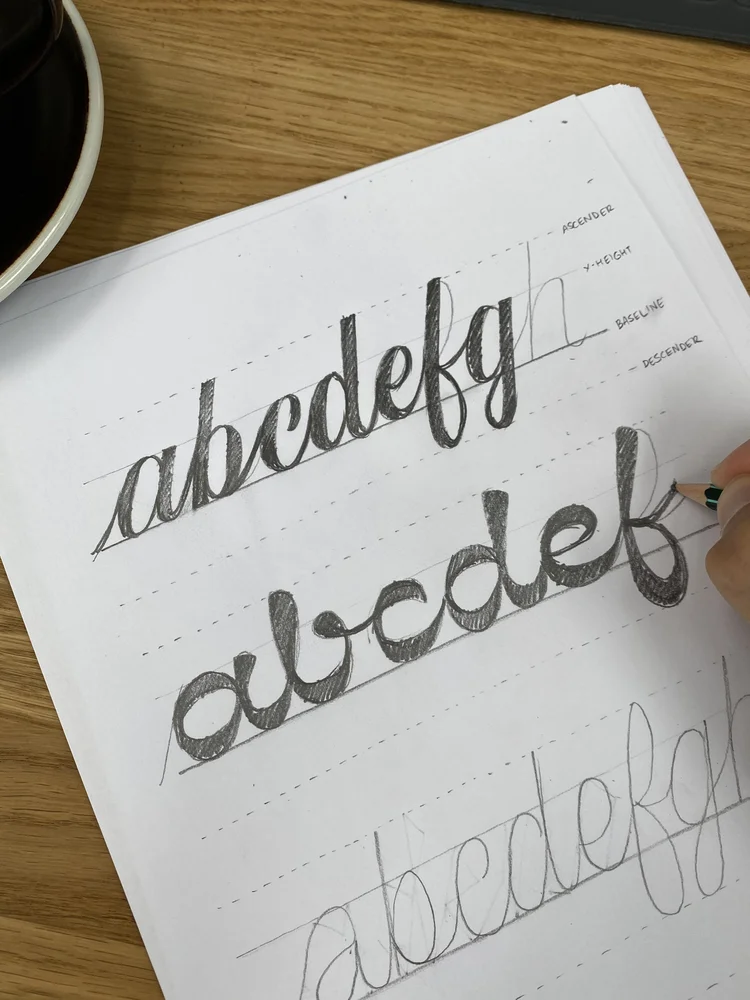 ASCENDER
X-HEIGHT
BASELINE
DESCENDER
abcdefgh
abcdef
abcdefgh